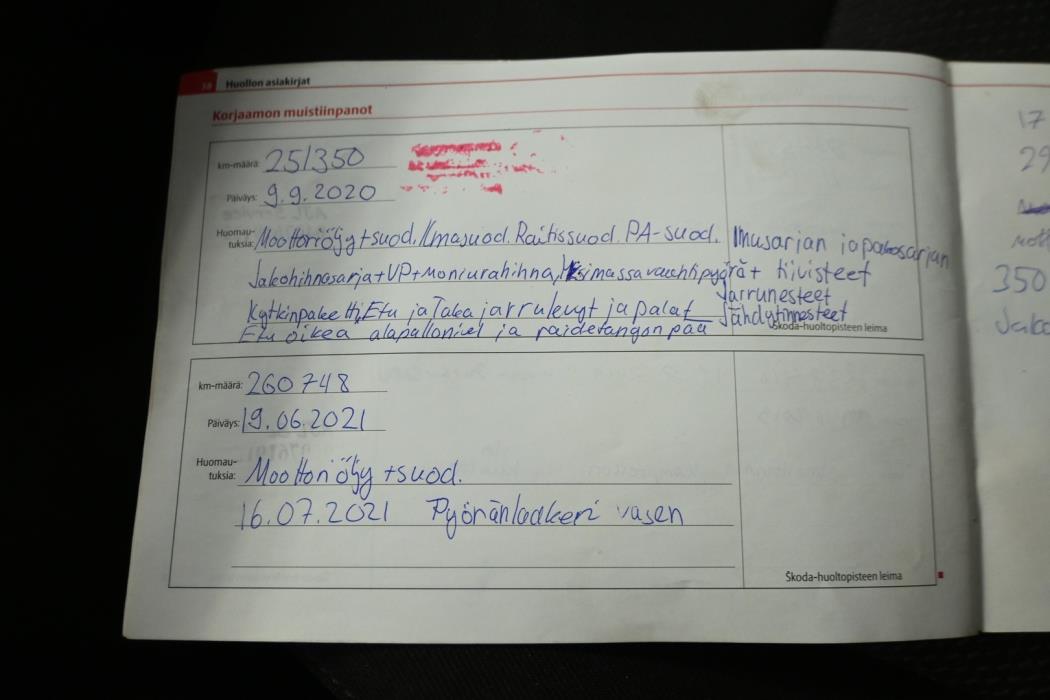 38 Huollon asiakirjat
Korjaamon muistiinpanot
km-määrä: 251350
Päiväys: 9.9.2020
Huomau-
tuksia: Moottoriöljy + suod. Ilmasuod. Raitissuod. PA-suod. Imusarjan ja pakosarjan
Jakohihnasarja + VP + moniurahihna, Kaksimassavauhtipyörä + tiivisteet
Jarrunesteet
Kytkinpaketti, Etu ja Taka jarrulevyt ja palat Jäähdytinnesteet
Etu oikea alapallonivel ja raidetangonpää
Škoda-huoltopisteen leima
km-määrä: 260748
Päiväys: 19.06.2021
Huomau-
tuksia: Moottoriöljy + suod.
16.07.2021 Pyöränlaakeri vasen
Škoda-huoltopisteen leima
17
29
350